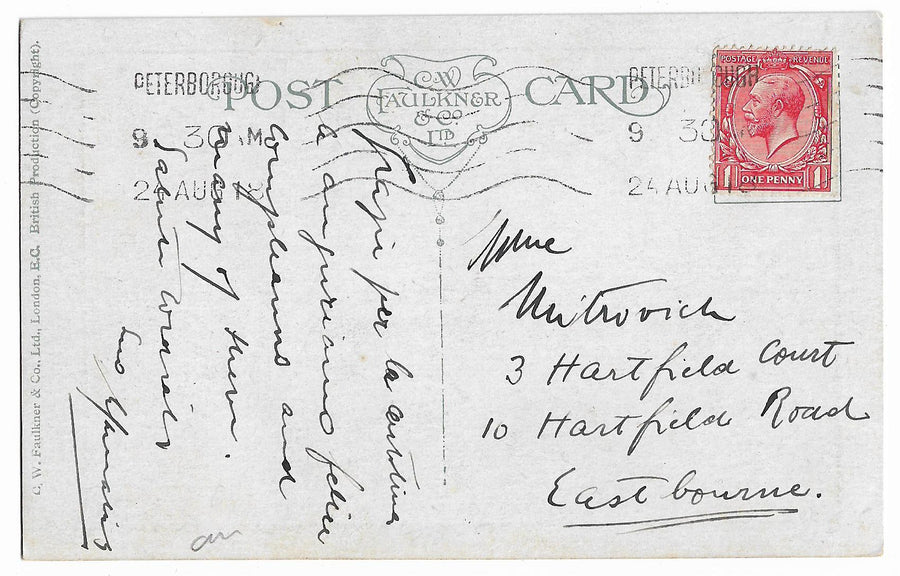 C. W. Faulkner & Co., Ltd., London, E.C. British Production (Copyright).
POST CARD
C.W. FAULKNER & Co LTD
PETERBOROUGH
9 30 AM
24 AUG 18
PETERBOROUGH
9 30
24 AUG 18
POSTAGE REVENUE
1 ONE PENNY 1
Grazie per la cartolina
le auguriamo felice
compleanno and
many of them.
Saluti cordiali
Suo
Mme
Mitrovich
3 Hartfield Court
10 Hartfield Road
Eastbourne.